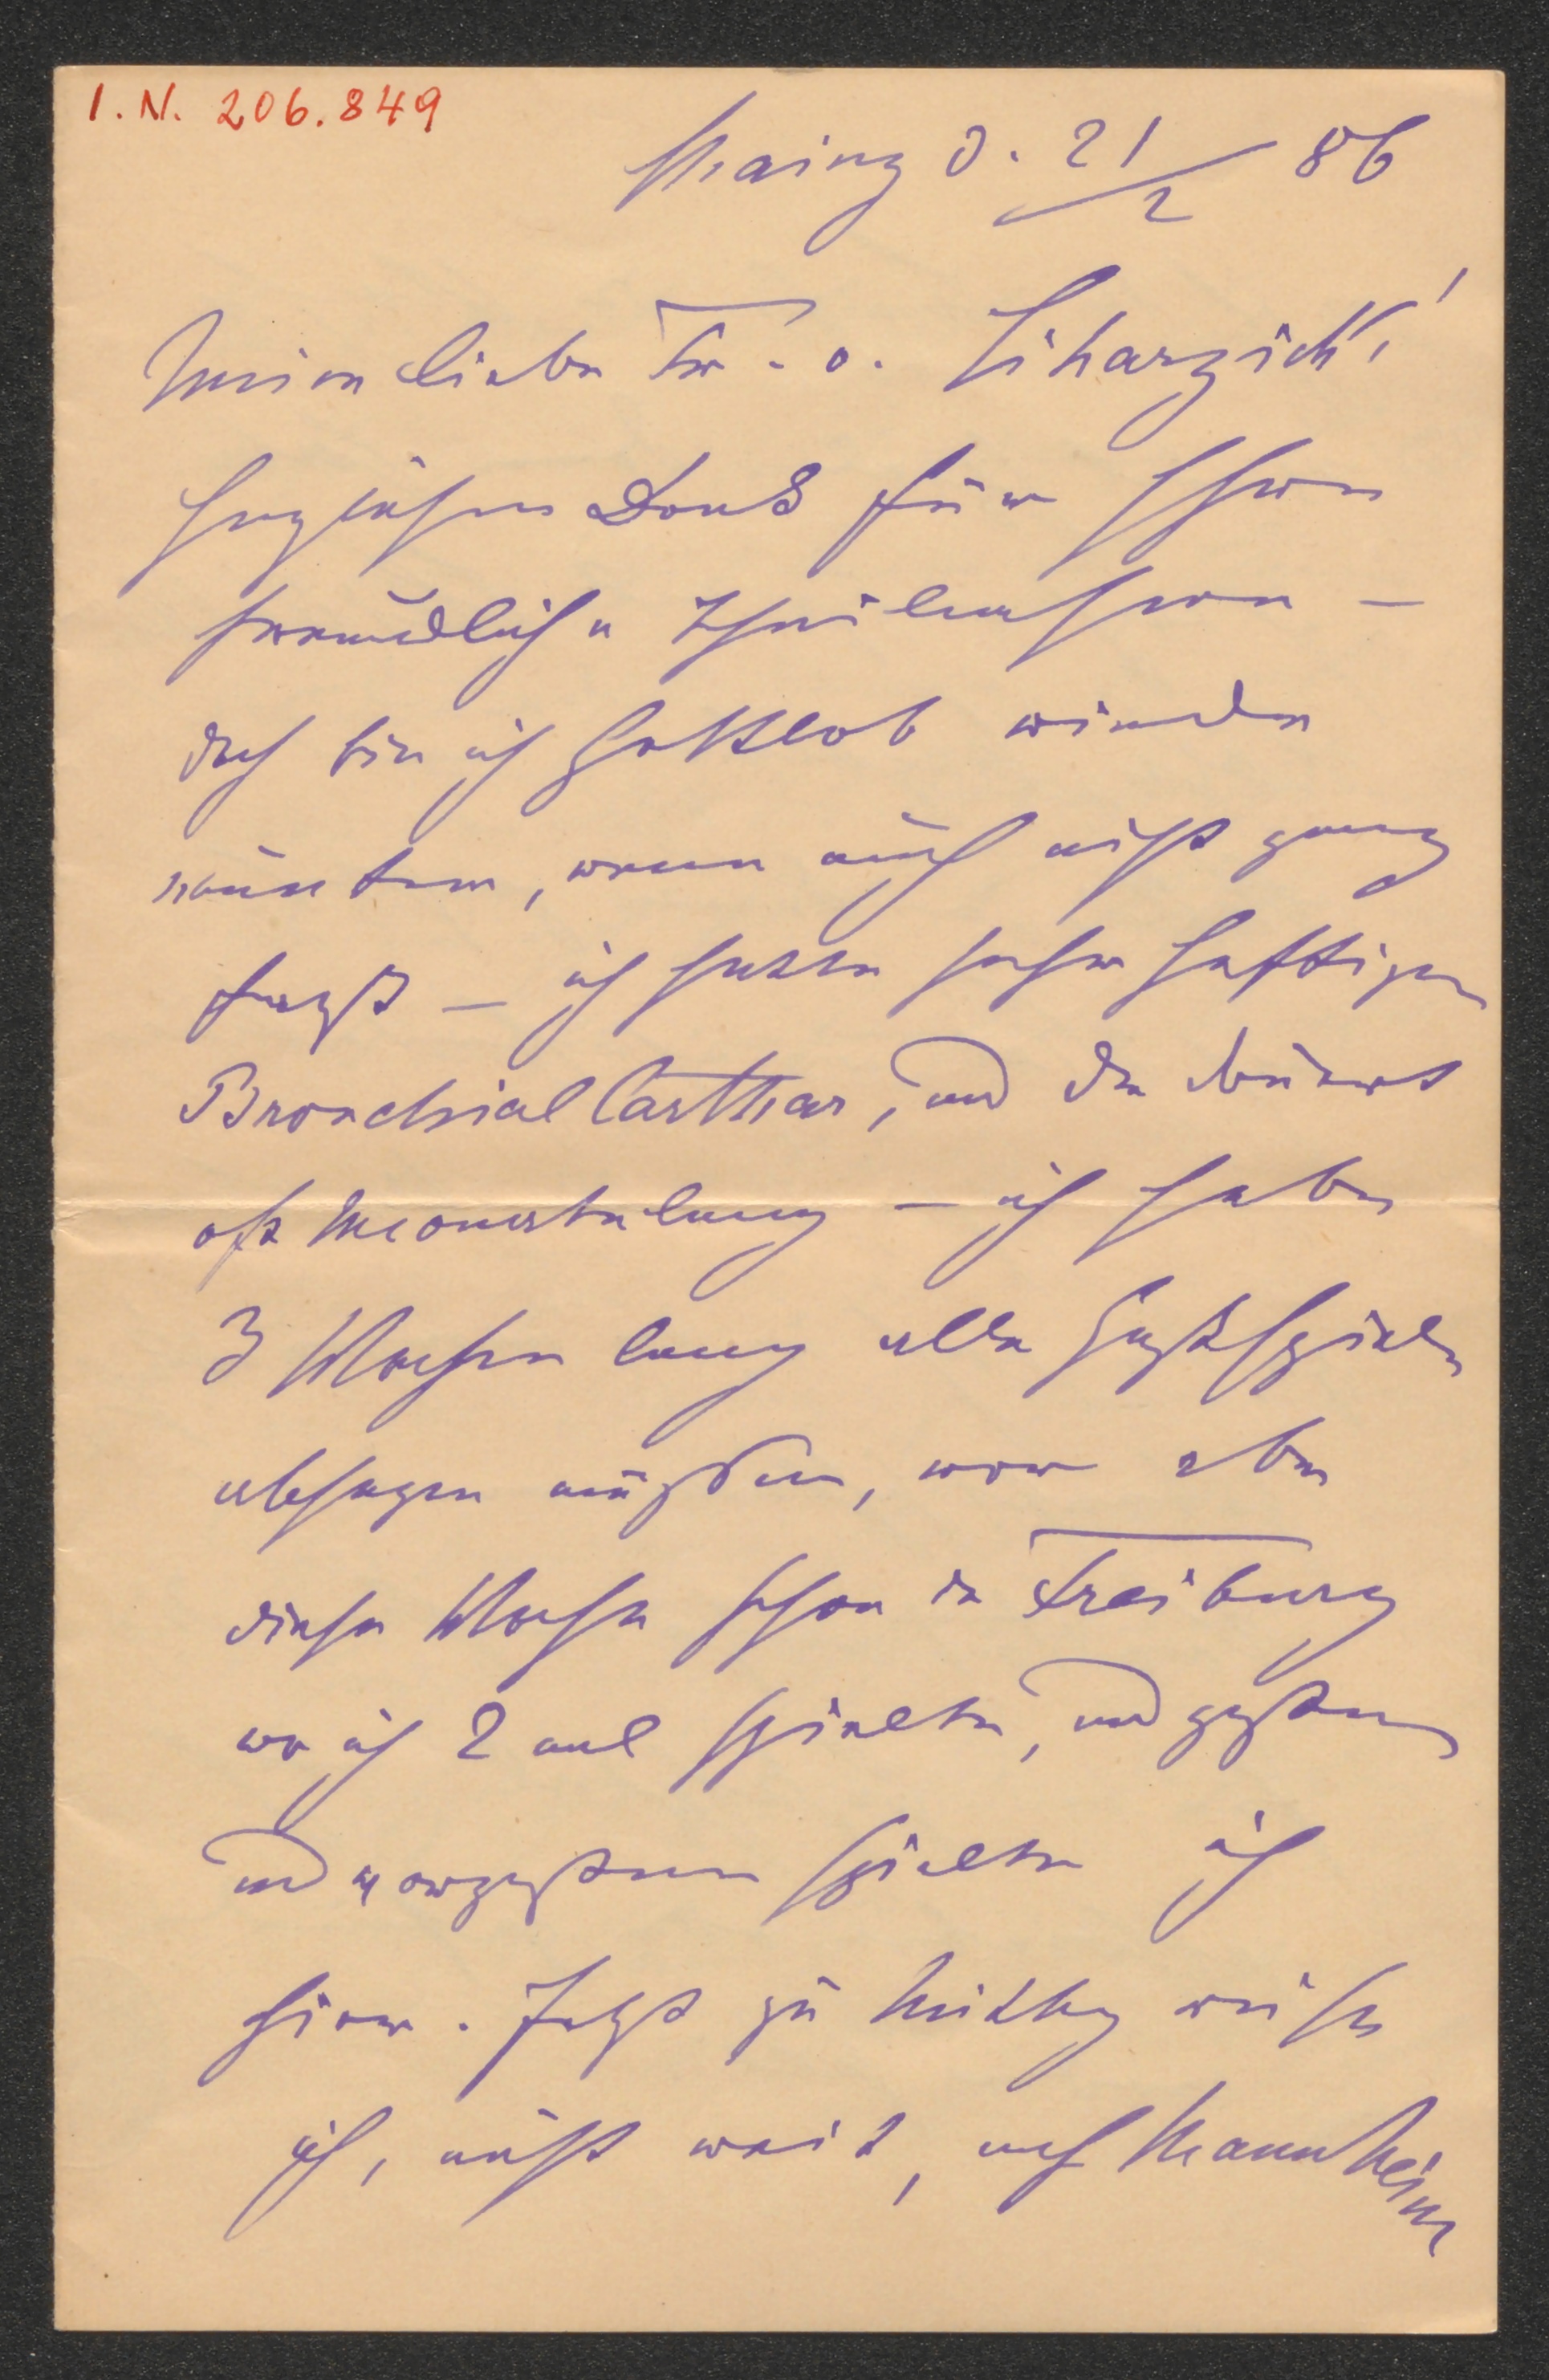 I. N. 206.849
Mainz d. 21/2 86
Meine liebe Fr. v. Liharzick!
Herzlichen Dank für Ihren
freundlichen Theilnahme –
doch bin ich Gottlob wieder
munter, wenn auch nicht ganz
fest – ich hatte sehr heftigen
Bronchial Catthar, und da dauert
oft Monatelang – ich habe
3 Wochen lang alle Gastspiele
absagen müßen, war aber
diese Woche schon in Freiburg
wo ich 2 mal spielte, und gestern
und vorgestern spielte ich
hier. Jetzt zu Mittag reise
ich, nicht weit, nach Mannheim